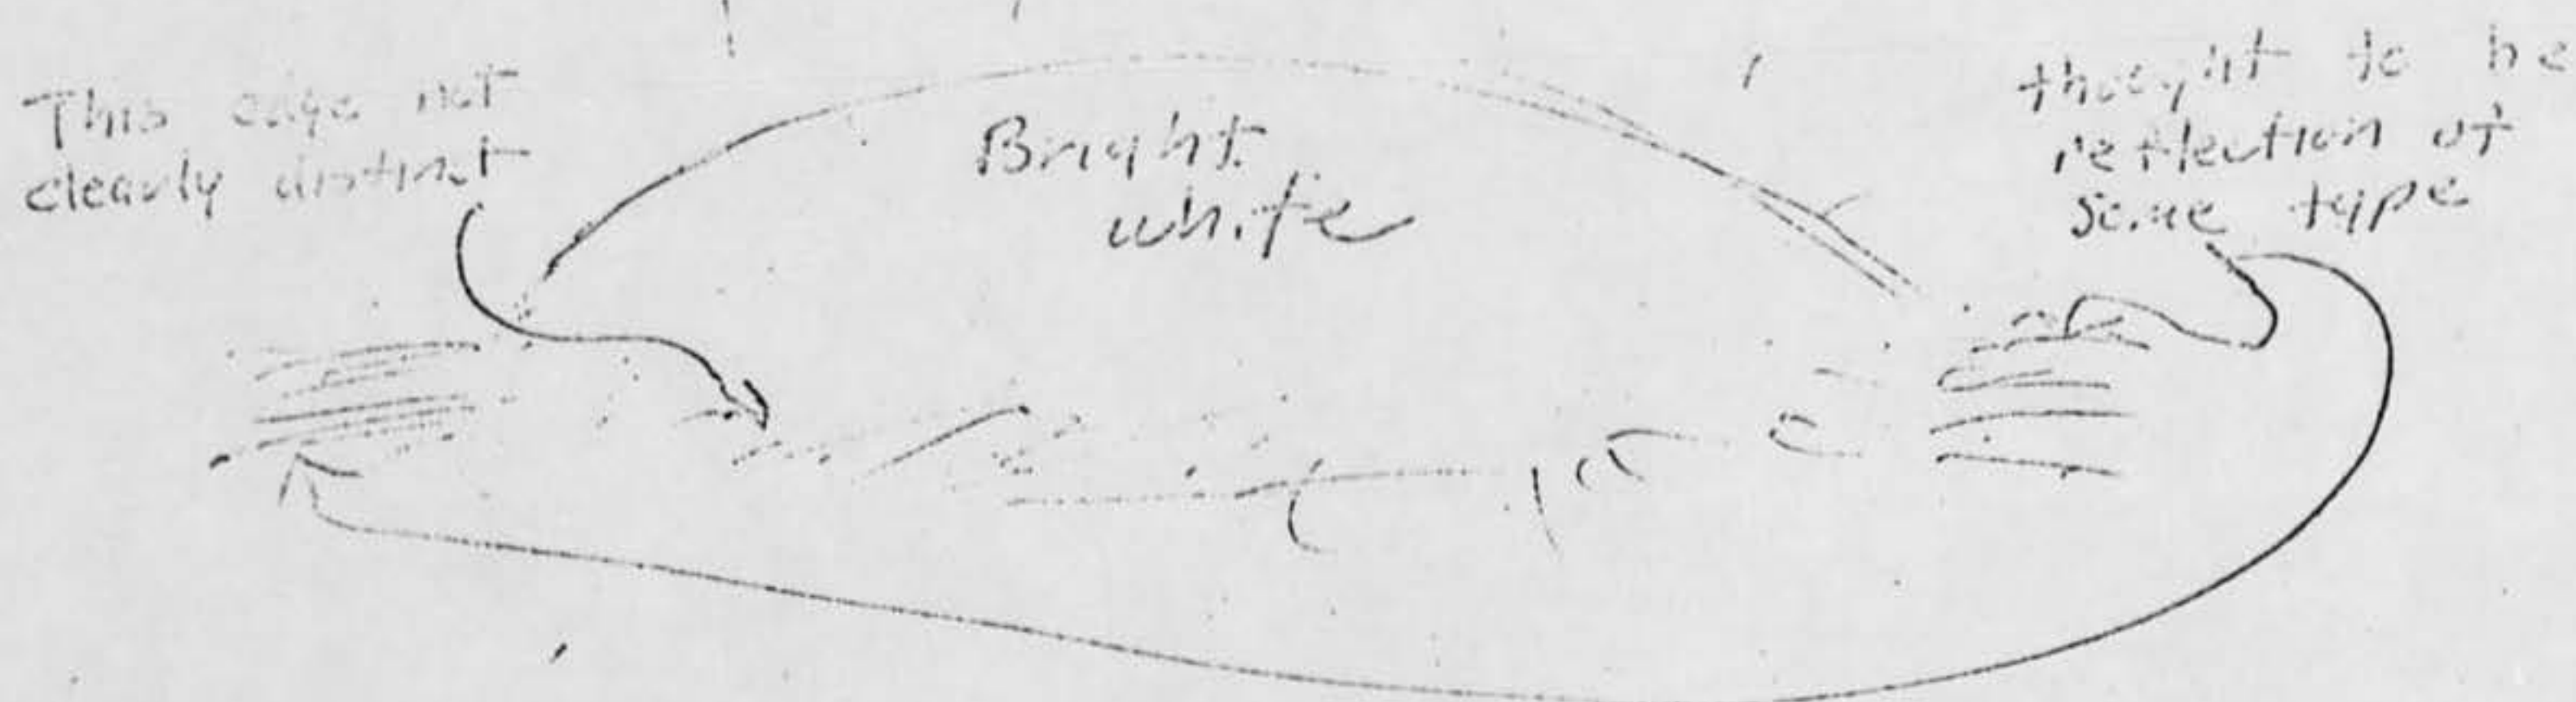 This edge not
clearly distinct
Bright
white
thought to be
reflection of
some type